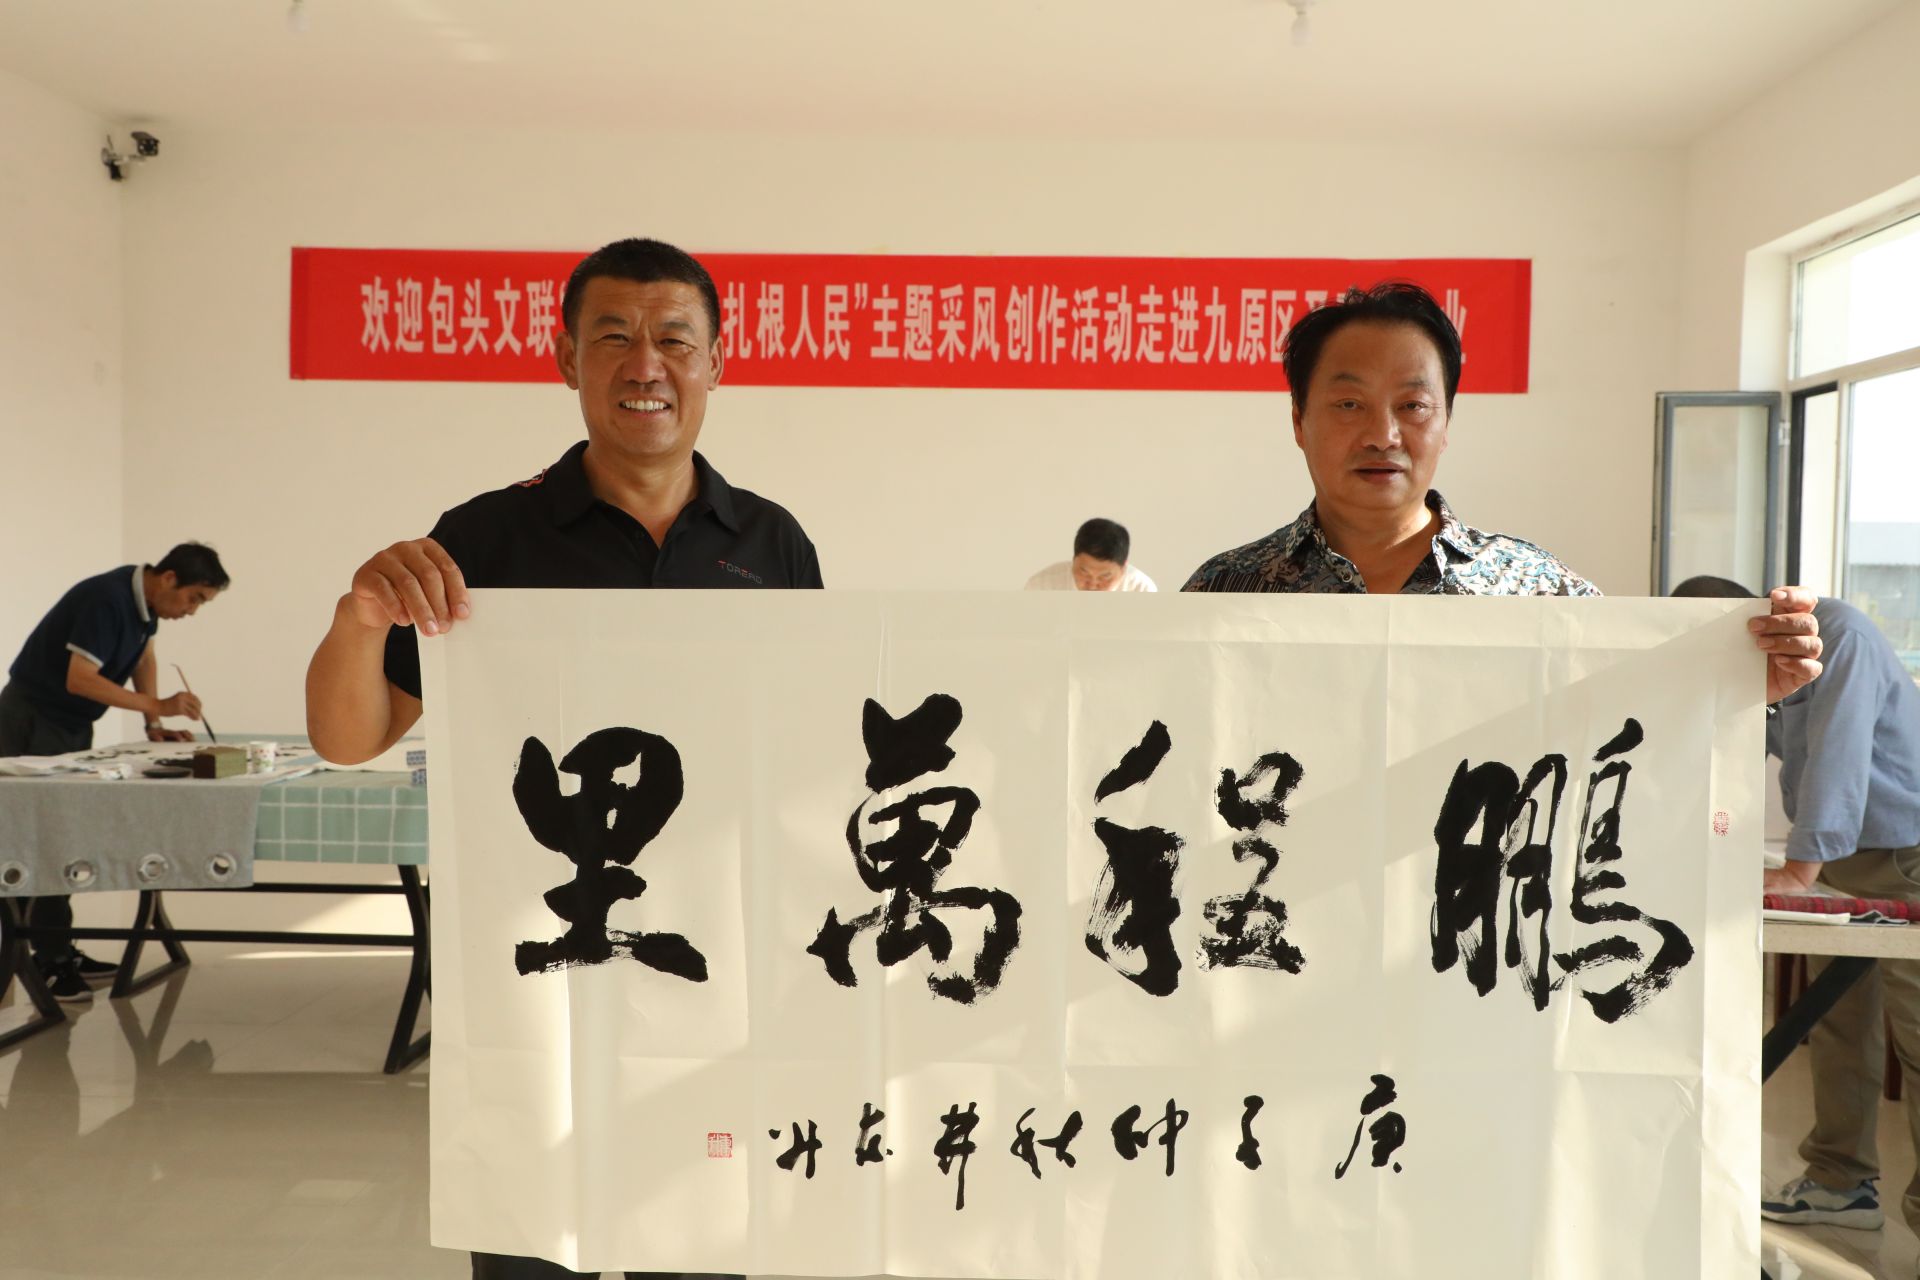 欢迎包头文联“扎根人民”主题采风创作活动走进九原区业
TORERO
鹏程萬里
庚子仲秋井东升